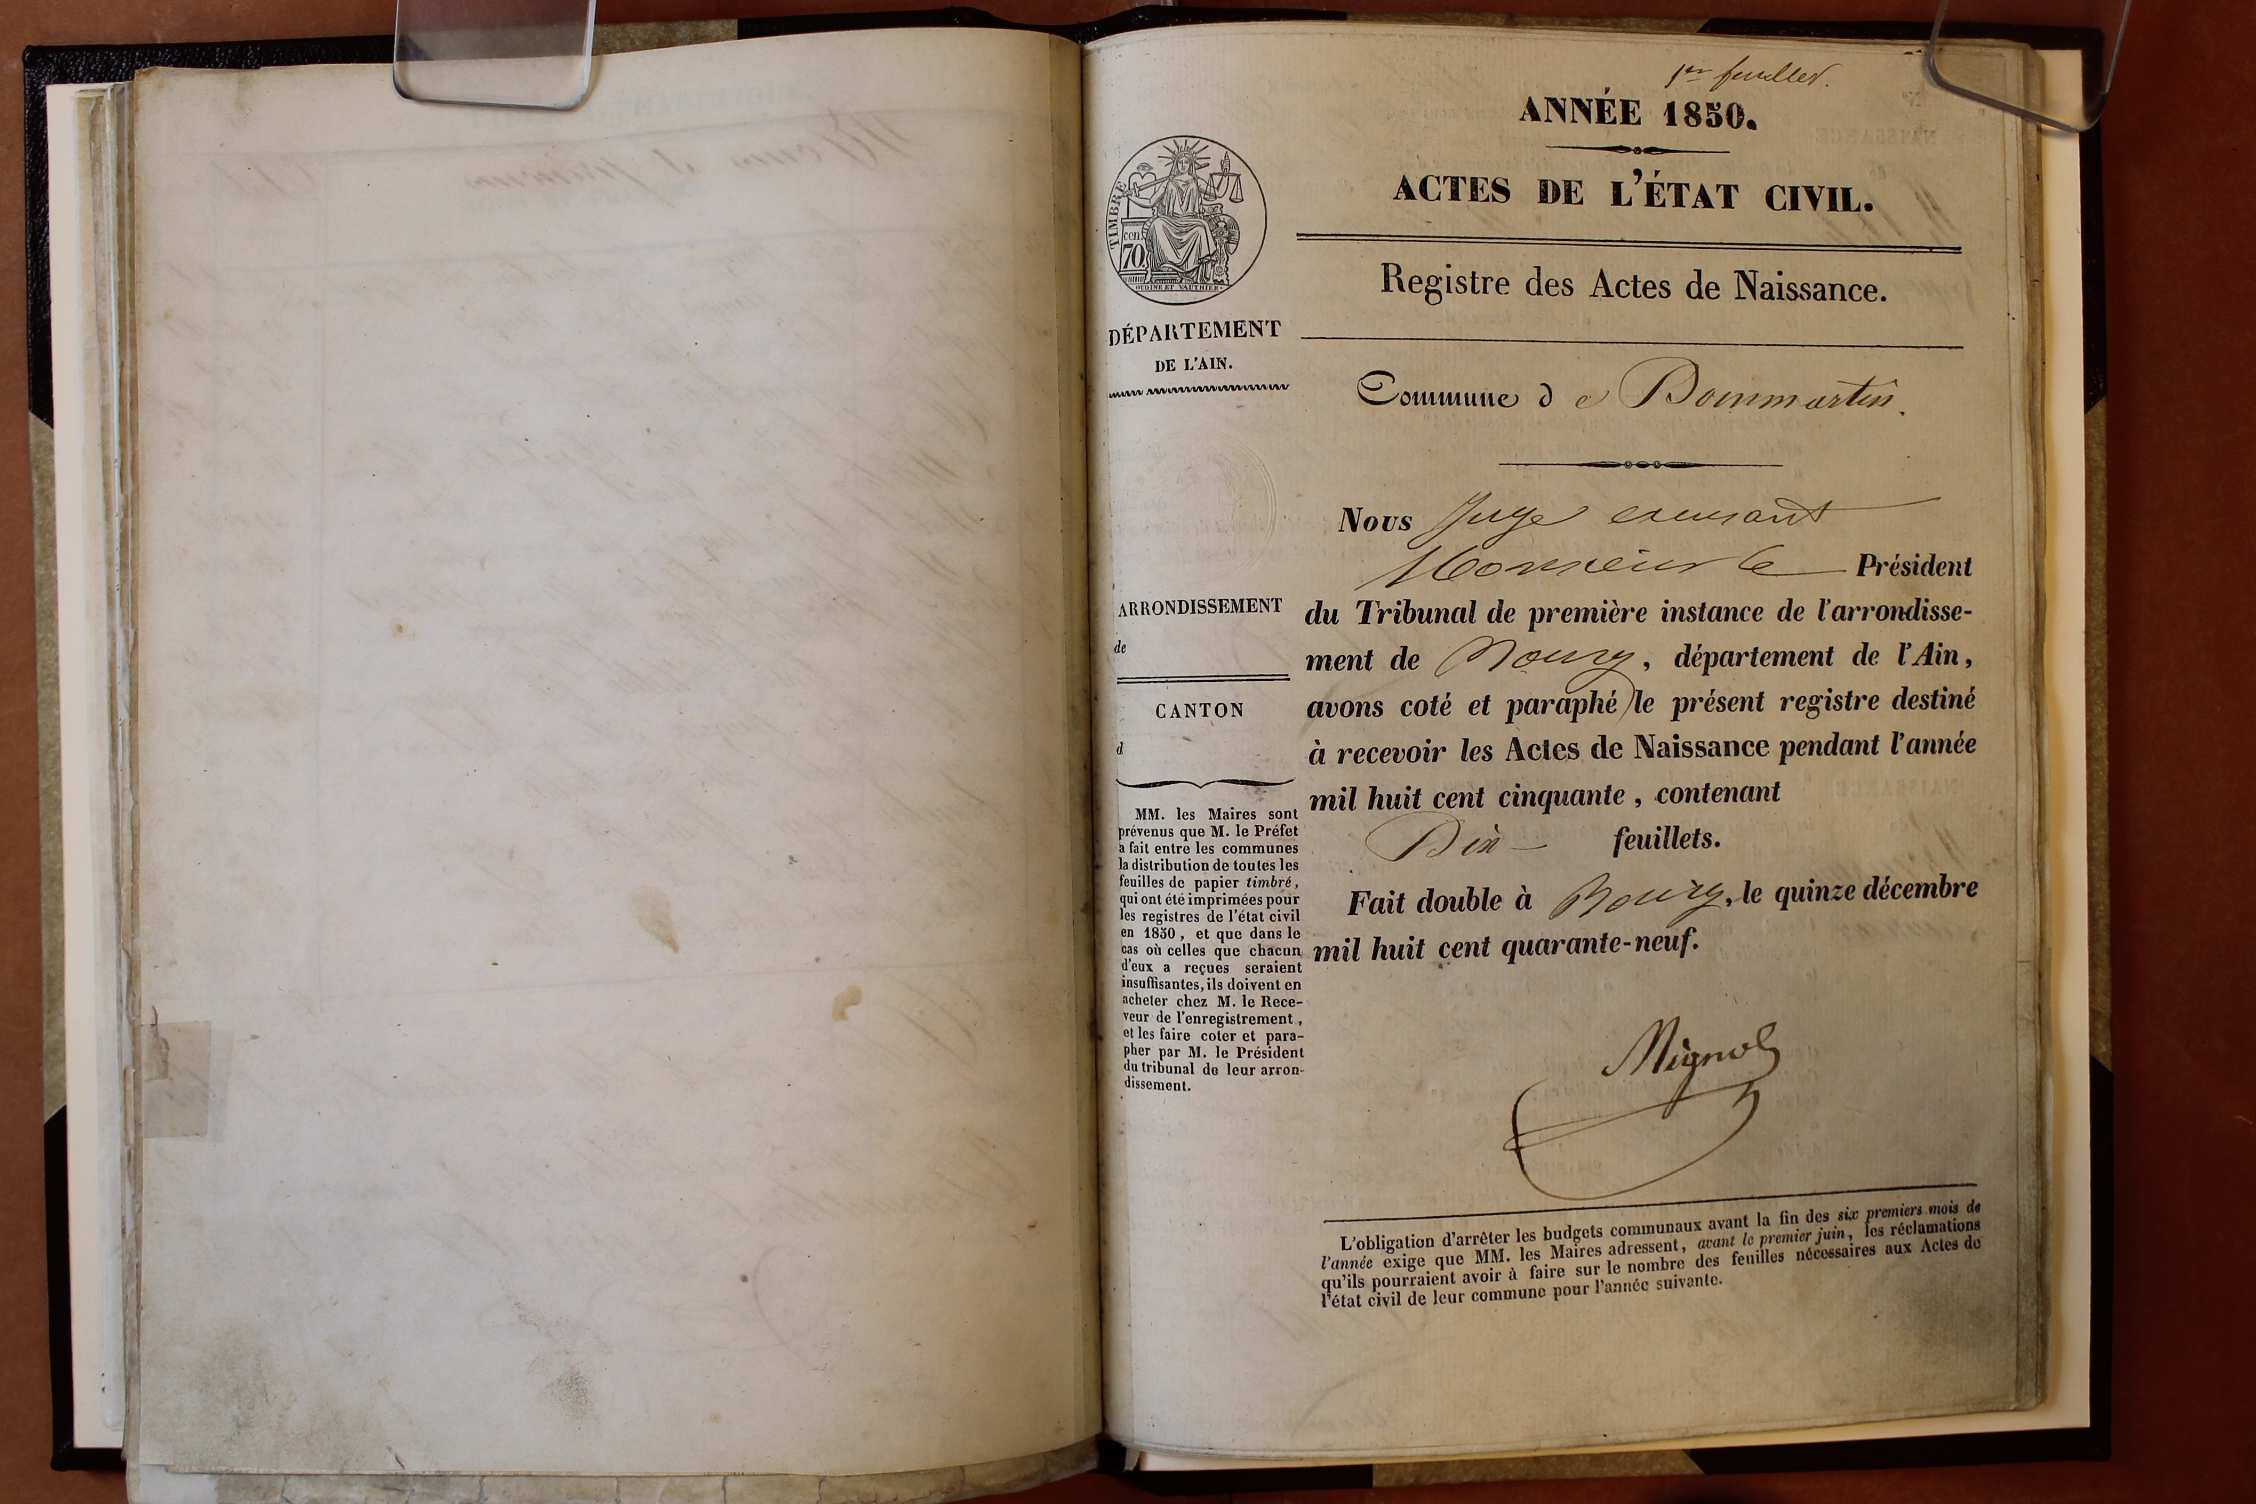 1er feuillet.
ANNÉE 1850.
ACTES DE L'ÉTAT CIVIL.
TIMBRE
70
cen.
OUDINE ET VAUTHIER
Registre des Actes de Naissance.
DÉPARTEMENT
DE L'AIN.
Commune de Dommartin.
Nous Juge excusant
Monsieur le Président
du Tribunal de première instance de l'arrondisse-
ment de Bourg, département de l'Ain,
avons coté et paraphé le présent registre destiné
à recevoir les Actes de Naissance pendant l'année
mil huit cent cinquante, contenant
Dix feuillets.
Fait double à Bourg, le quinze décembre
mil huit cent quarante-neuf.
Mignot
ARRONDISSEMENT
de
CANTON
d
MM. les Maires sont
prévenus que M. le Préfet
a fait entre les communes
la distribution de toutes les
feuilles de papier timbré,
qui ont été imprimées pour
les registres de l'état civil
en 1850, et que dans le
cas où celles que chacun
d'eux a reçues seraient
insuffisantes, ils doivent en
acheter chez M. le Rece-
veur de l'enregistrement,
et les faire coter et para-
pher par M. le Président
du tribunal de leur arron-
dissement.
L'obligation d'arrêter les budgets communaux avant la fin des six premiers mois de
l'année exige que MM. les Maires adressent, avant le premier juin, les réclamations
qu'ils pourraient avoir à faire sur le nombre des feuilles nécessaires aux Actes de
l'état civil de leur commune pour l'année suivante.